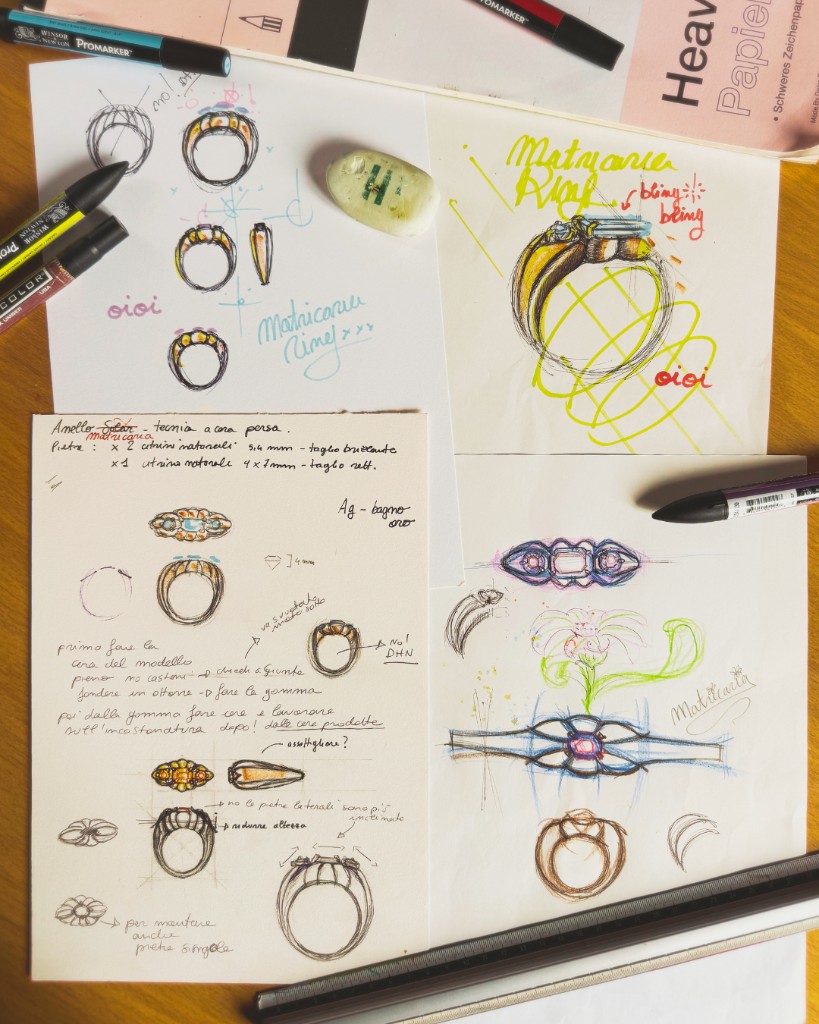 WINSOR & NEWTON
PROMARKER
PROMARKER
Heav
Papier
• Schweres Zeichenpap
NO!
WINSOR & NEWTON
Pro
COLOR
oioi
Matricaria
Ring xxx
Matricaria
Ring
bling
bling
oioi
Anello Solar - tecnia a cera persa.
matricaria
Pietre : x 2 citrini naturali 5,4 mm - taglio brillante
x 1 citrino naturale 4 x 7 mm - taglio rett.
Ag - bagno
oro
4 mm
va svuotato
NO!
DHN
prima fare la
cera del modello
pieno no castoni → chiedi a Giunta
fondere in ottone → fare la gomma
poi dalla gomma fare cere e lavorare
sull'incastonatura dopo! dalle cere prodotte
assottigliare?
no le pietre laterali sono più
inclinate
ridurre altezza
per montare
anche
pietre singole
Matricaria